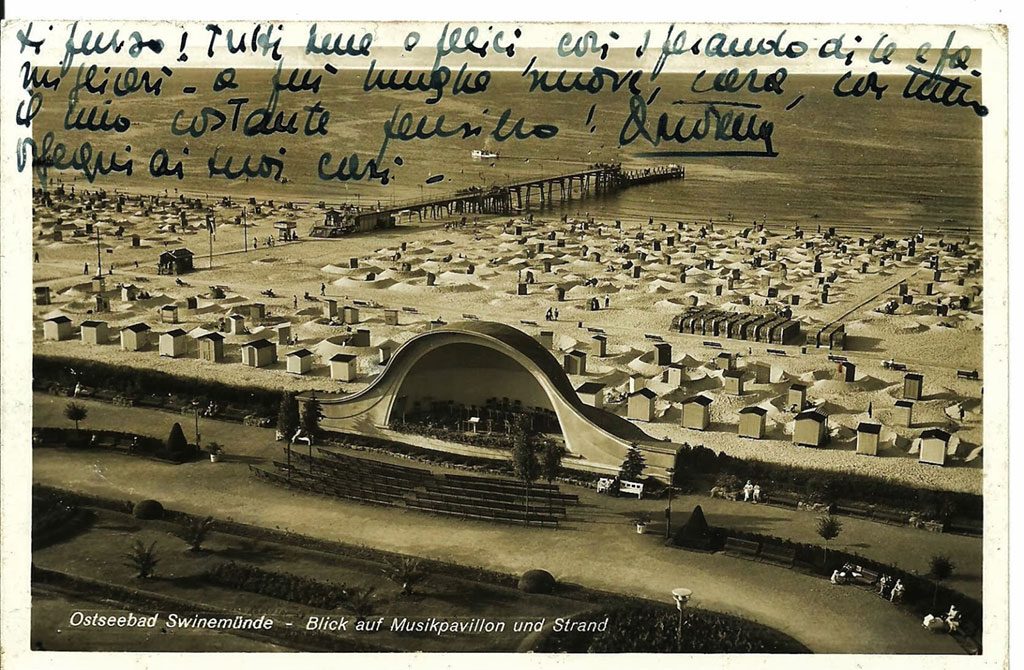 ti penso! Tutti bene e felici, così sperando di te e fa-
migliari - a più lunghe nuove, cara, con tutto
il mio costante pensiero!
ossequi ai tuoi cari. -
Ostseebad Swinemünde - Blick auf Musikpavillon und Strand